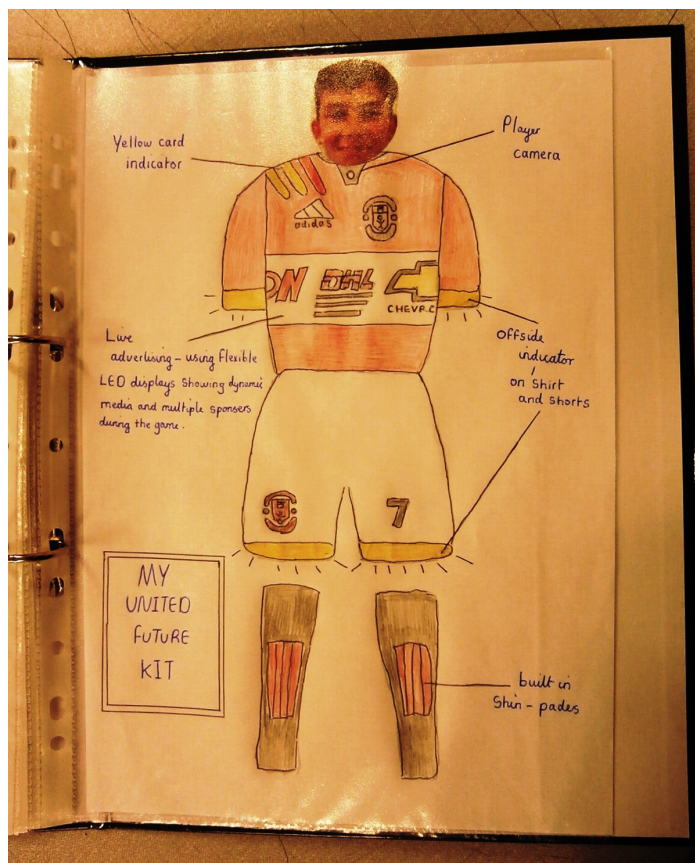 Yellow card
indicator
Player
camera
adidas
ON
DHL
CHEVRC
Live
advertising - using flexible
LED displays showing dynamic
media and multiple sponsers
during the game.
Offside
indicator
on shirt
and shorts
7
MY
UNITED
FUTURE
KIT
built in
Shin - pades